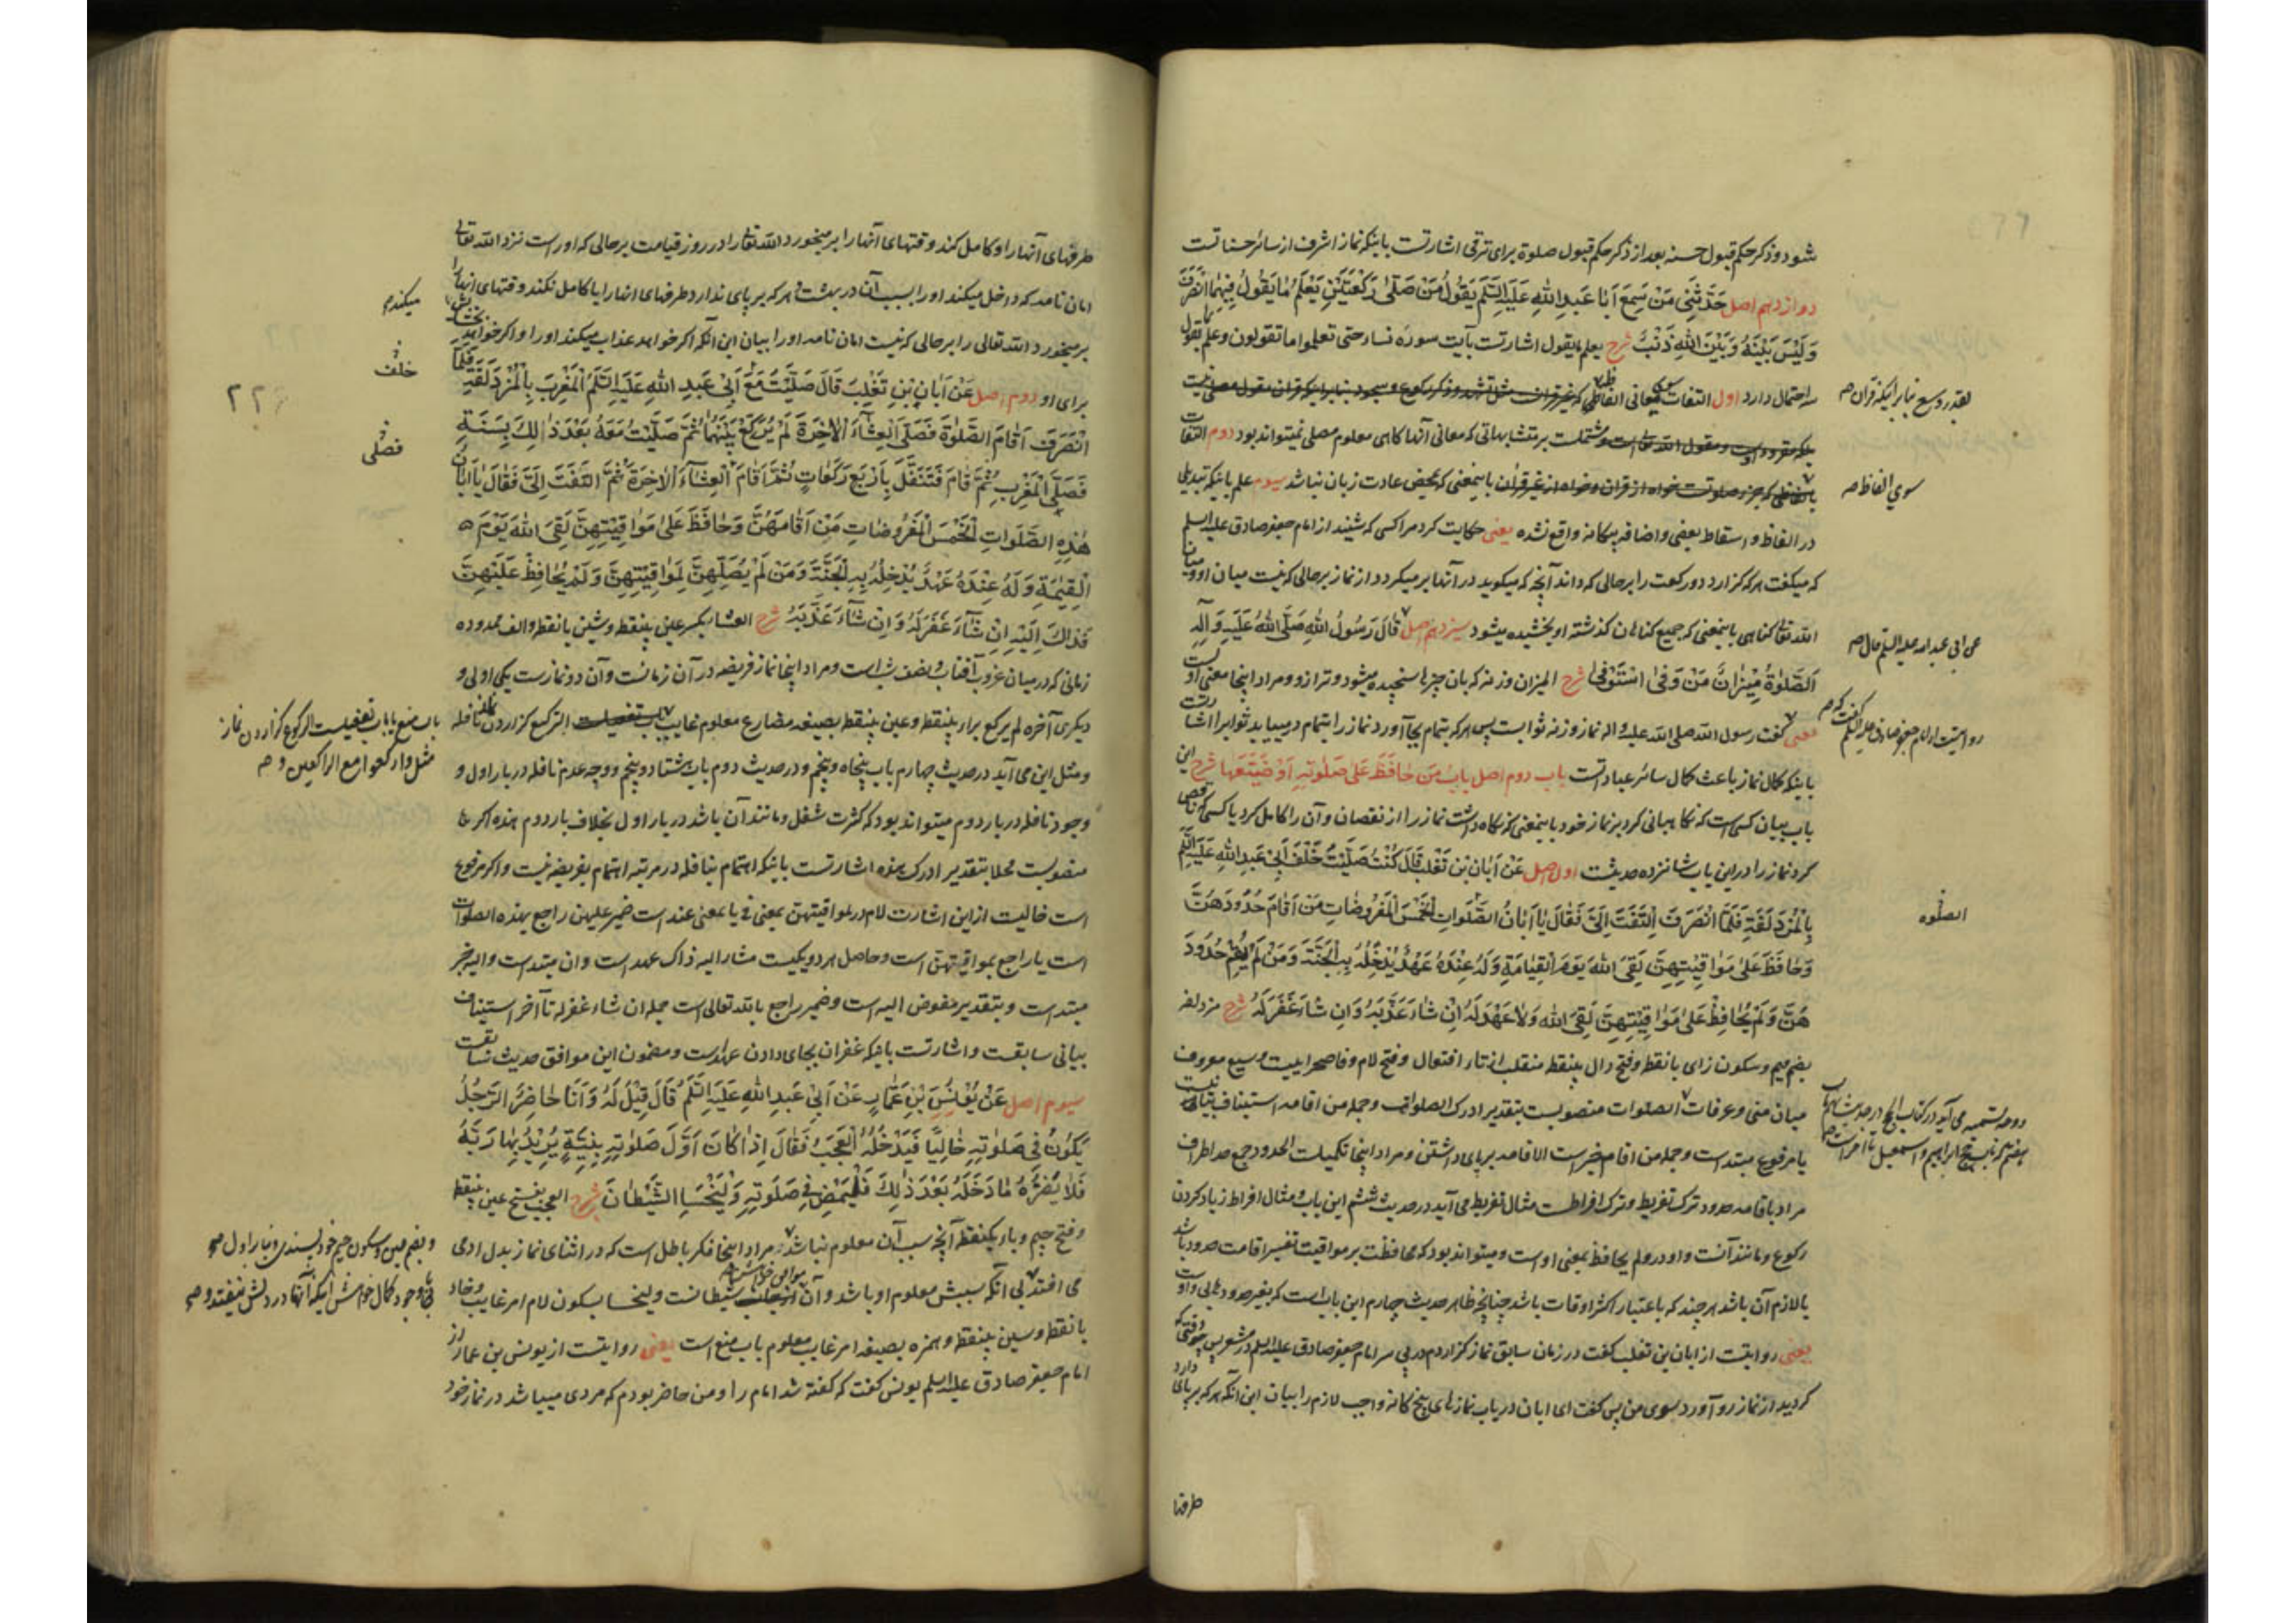 شود و ذکر حکم قبول حسنه بعد از ذکر حکم قبول صلوة برای ترقی اشارتست باینکه نماز اشرف از سائر حسناتست
دوازدهم اصل حَدَّثَنِی مَنْ سَمِعَ اَبَا عَبدِ اللهِ عَلَیهِ السَّلَم یَقُولُ مَنْ صَلّٰی رَکْعَتَیْنِ یَعْلَمُ مٰا یَقُولُ فِیهِمٰا اِنْصَرَفَ
وَلَیْسَ بَیْنَهُ وَبَیْنَ اللهِ ذَنْبٌ شرح یعلم ما یقول اشارتست بآیت سورهٔ نساء حتی تعلموا ما تقولون و علم بقول
سه احتمال دارد اول التفات بمعانی الفاظی که غیر قرآن مثل تشهد و ذکر رکوع و سجود بنابر اینکه قرآن مقول مصلی نیست
بقدر وسع بنابر اینکه قرآن صح
مشتملست بر متشابهاتی که معانی آنها کاهی معلوم مصلی نمیتواند بود دوم التفات
بالفاظی که جزو صلوتست خواه از قرآن و خواه از غیر قرآن باینمعنی که بمحض عادت زبان نباشد سیوم علم باینکه تبدیلی
سوی الفاظ صح
در الفاظ و اسقاط بعضی و اضافه بیکانه واقع نشده یعنی حکایت کرد مرا کسی که شنید از امام جعفر صادق علیه السلم
که میکفت هر که کزارد دو رکعت را بر حالی که داند آنچه که میکوید در آنها بر میکردد از نماز بر حالی که نیست میان او و میان
الله تعالی کناهی باینمعنی که جمیع کناهان کذشته او بخشیده میشود سیزدهم اصل قَالَ رَسُولُ اللهِ صَلَّی اللهُ عَلَیهِ وَآلِهِ
عن ابی عبد الله علیه السلم قال صح
اَلصَّلٰوةُ مِیْزٰانٌ مَنْ وَفّٰی اسْتَوْفٰی شرح المیزان وزنه که بآن چیزها سنجیده میشود و ترازو و مراد اینجا معنی اولست
یعنی کفت رسول الله صلی الله علیه و اله نماز وزنه ثوابست پس هر که بتمام بجا آورد نماز را بتمام درمییابد ثواب را اشارتست
روایتست از امام جعفر صادق علیه السلم کفت که صح
باینکه کمال نماز باعث کمال سائر عباداتست باب دوم اصل بَابُ مَنْ حٰافَظَ عَلیٰ صَلٰوتِهِ اَوْ ضَیَّعَهَا شرح این
باب بیان کسی است که نکاهبانی کرد بر نماز خود باینمعنی که نکاه داشت نماز را از نقصان و آن را کامل کرد یا کسی که ناقص
کرد نماز را در این باب شانزده حدیثست اول اصل عَنْ اَبَانِ بْنِ تَغْلِبَ قَالَ کُنْتُ صَلَّیْتُ خَلْفَ اَبِی عَبدِ اللهِ عَلَیهِ السَّلَم
بِالْمُزْدَلِفَةِ فَلَمَّا انْصَرَفَ اِلْتَفَتَ اِلَیَّ فَقَالَ یٰا اَبٰانُ الصَّلَوٰاتُ الْخَمْسُ الْمَفْرُوضٰاتِ مَنْ اَقٰامَ حُدُودَهُنَّ
الصلوه
وَحٰافَظَ عَلیٰ مَوٰاقِیْتِهِنَّ لَقِیَ اللهَ یَوْمَ الْقِیٰامَةِ وَلَهُ عِنْدَهُ عَهْدٌ یُدْخِلُهُ بِهِ الْجَنَّةَ وَمَنْ لَمْ یُقِمْ حُدُودَ
هُنَّ وَلَمْ یُحٰافِظْ عَلیٰ مَوٰاقِیْتِهِنَّ لَقِیَ اللهَ وَلٰا عَهْدَ لَهُ اِنْ شٰاءَ عَذَّبَهُ وَاِنْ شٰاءَ غَفَرَ لَهُ شرح مزدلفه
بضم میم و سکون زای بانقطه و فتح دال بینقطه منقلب از تاء افتعال و فتح لام و فا صحراییست وسیع معروف
میان منی و عرفات الصلوات منصوبست بتقدیر ادرک الصلوات و جمله من اقام استیناف بیانیست
یا مرفوع مبتداست و جمله من اقام خبر است الاقامه بر پای داشتن و مراد اینجا تکمیلست الحدود جمع حد اطراف
مراد باقامه حدود ترک تفریط و ترک افراطست مثال تفریط می آید در حدیث ششم این باب و مثال افراط زیاد کردن
رکوع و مانند آنست واو در ولم یحافظ بمعنی او است و میتواند بود که محافظت بر مواقیت تفسیر اقامت حدود باشد
یا لازم آن باشد هر چند که باعتبار اکثر اوقات باشد چنانچه ظاهر حدیث چهارم این باب است
یعنی روایتست از ابان بن تغلب کفت در زمان سابق نماز کزاردم در پی سر امام جعفر صادق علیه السلم در مشعر پس وقتی که
کردید از نماز رو آورد بسوی من پس کفت ای ابان دریاب نمازهای پنج کانه واجب لازم را بیان این آنکه هر که بر پای دارد
طرفها
طرفهای آنها را و کامل کند وقتهای آنها را بر میخورد الله تعالی را در روز قیامت بر حالی که او راست نزد الله تعالی
امان نامه که داخل میکند او را بسبب آن در بهشت و هر که بر پای ندارد طرفهای انها را یا کامل نکند وقتهای انها را
میکندم
بر میخورد الله تعالی را بر حالی که نیست امان نامه او را بیان این آنکه اکر خواهد عذاب میکند او را و اکر خواهد بخشش
برای او دوم اصل عَنْ اَبَانِ بْنِ تَغْلِبَ قَالَ صَلَّیْتُ مَعَ اَبِی عَبدِ اللهِ عَلَیهِ السَّلَمُ الْمَغْرِبَ بِالْمُزْدَلِفَةِ فَلَمَّا
خلف
٢٢
انْصَرَفَ اَقٰامَ الصَّلٰوةَ فَصَلَّی الْعِشٰاءَ الْاٰخِرَةَ لَمْ یَرْکَعْ بَیْنَهُمٰا ثُمَّ صَلَّیْتُ مَعَهُ بَعْدَ ذٰلِکَ بِسَنَةٍ
فصلی
فَصَلَّی الْمَغْرِبَ ثُمَّ قٰامَ فَتَنَفَّلَ بِاَرْبَعِ رَکَعٰاتٍ ثُمَّ اَقٰامَ الْعِشٰاءَ الْاٰخِرَةَ ثُمَّ الْتَفَتَ اِلَیَّ فَقَالَ یٰا اَبٰانُ
هٰذِهِ الصَّلَوٰاتِ الْخَمْسَ الْمَفْرُوضٰاتِ مَنْ اَقٰامَهُنَّ وَحٰافَظَ عَلیٰ مَوٰاقِیْتِهِنَّ لَقِیَ اللهَ یَوْمَ
الْقِیٰمَةِ وَلَهُ عِنْدَهُ عَهْدٌ یُدْخِلُهُ بِهِ الْجَنَّةَ وَمَنْ لَمْ یُصَلِّهِنَّ لِمَوٰاقِیْتِهِنَّ وَلَمْ یُحٰافِظْ عَلَیْهِنَّ
فَذٰلِکَ اِلَیْهِ اِنْ شٰاءَ غَفَرَ لَهُ وَاِنْ شٰاءَ عَذَّبَهُ شرح العشاء بکسر عین بینقطه و شین بانقطه و الف ممدوده
زمانی که در میان غروب آفتاب و نصف شب است و مراد اینجا نماز فریضه در آن زمانست و آن دو نماز است یکی اولی و
دیکری آخره لم یرکع براء بینقطه و عین بینقطه بصیغه مضارع معلوم غایب الرکوع کزاردن نماز نافله
باب منع یا باب تفعیلست الرکوع کزاردن نماز
مثل وارکعوا مع الراکعین و صح
و مثل این می آید در حدیث چهارم باب پنجاه و پنجم و در حدیث دوم باب هشتاد و پنجم و وجه عدم نافله در بار اول و
وجود نافله در بار دوم میتواند بود که کثرت شغل و مانند آن باشد در بار اول بخلاف بار دوم هذه اکر
منصوبست محلا بتقدیر ادرک هذه اشارتست باینکه اهتمام بنافله در مرتبه اهتمام بفریضه نیست و اکر مرفوع
است خالیست از این اشارت لام در لمواقیتهن بمعنی فی یا بمعنی عند است ضمیر علیهن راجع بهذه الصلوات
است یا راجع بمواقیتهن است و حاصل هر دو یکیست مشار الیه ذاک عهد است و ان مبتداست و الیه خبر
مبتداست و بتقدیر مفوض الیه است و ضمیر راجع بالله تعالی است جمله ان شاء غفر له تا آخر استیناف
بیانی سابقست و اشارتست باینکه غفران بجای دادن عهد است و مضمون این موافق حدیث سابقست
سیوم اصل عَنْ یُوْنُسَ بْنِ عَمّٰارٍ عَنْ اَبِی عَبدِ اللهِ عَلَیهِ السَّلَمُ قَالَ قِیْلَ لَهُ وَاَنَا حٰاضِرٌ الرَّجُلُ
یَکُوْنُ فِی صَلٰوتِهِ خٰالِیًا فَیَدْخُلُهُ الْعَجَبُ فَقٰالَ اِذٰا کٰانَ اَوَّلَ صَلٰوتِهِ بِنِیَّةٍ یُرِیْدُ بِهٰا رَبَّهُ
فَلٰا یَضُرُّهُ مٰا دَخَلَهُ بَعْدَ ذٰلِکَ فَلْیَمْضِ فِی صَلَوتِهِ وَلْیَخْسَإِ الشَّیْطٰانَ شرح العجب بفتح عین بینقطه
و فتح جیم و باء یکنقطه آنچه سبب آن معلوم نباشد و مراد اینجا فکر باطل است که در اثنای نماز بدل ادمی
و بضم عین و سکون جیم خود پسندی و بنابر اول صح
می افتد بی آنکه سببش معلوم او باشد و آن شیطانست و لیخسا بسکون لام امر غایب و خاء
با وجود کمال خواهش اینکه آنها در دلش نیفتد و صح
بانقطه و سین بینقطه و همزه بصیغه امر غایب معلوم باب منع است یعنی روایتست از یونس بن عمار از
امام جعفر صادق علیه السلم یونس کفت که کفته شد امام را و من حاضر بودم که مردی میباشد در نماز خود